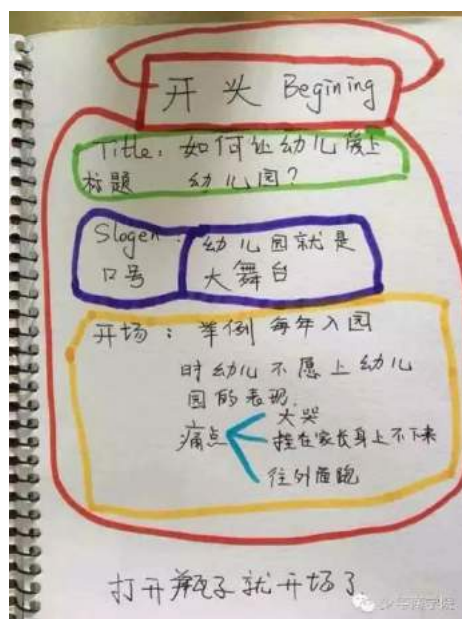 开头 Begining
Title: 如何让幼儿爱上
标题 幼儿园?
Slogen: 幼儿园就是
口号 大舞台
开场: 举例 每年入园
时幼儿不愿上幼儿
园的表现.
大哭
痛点 挂在家长身上不下来
往外面跑
打开瓶子就开场了